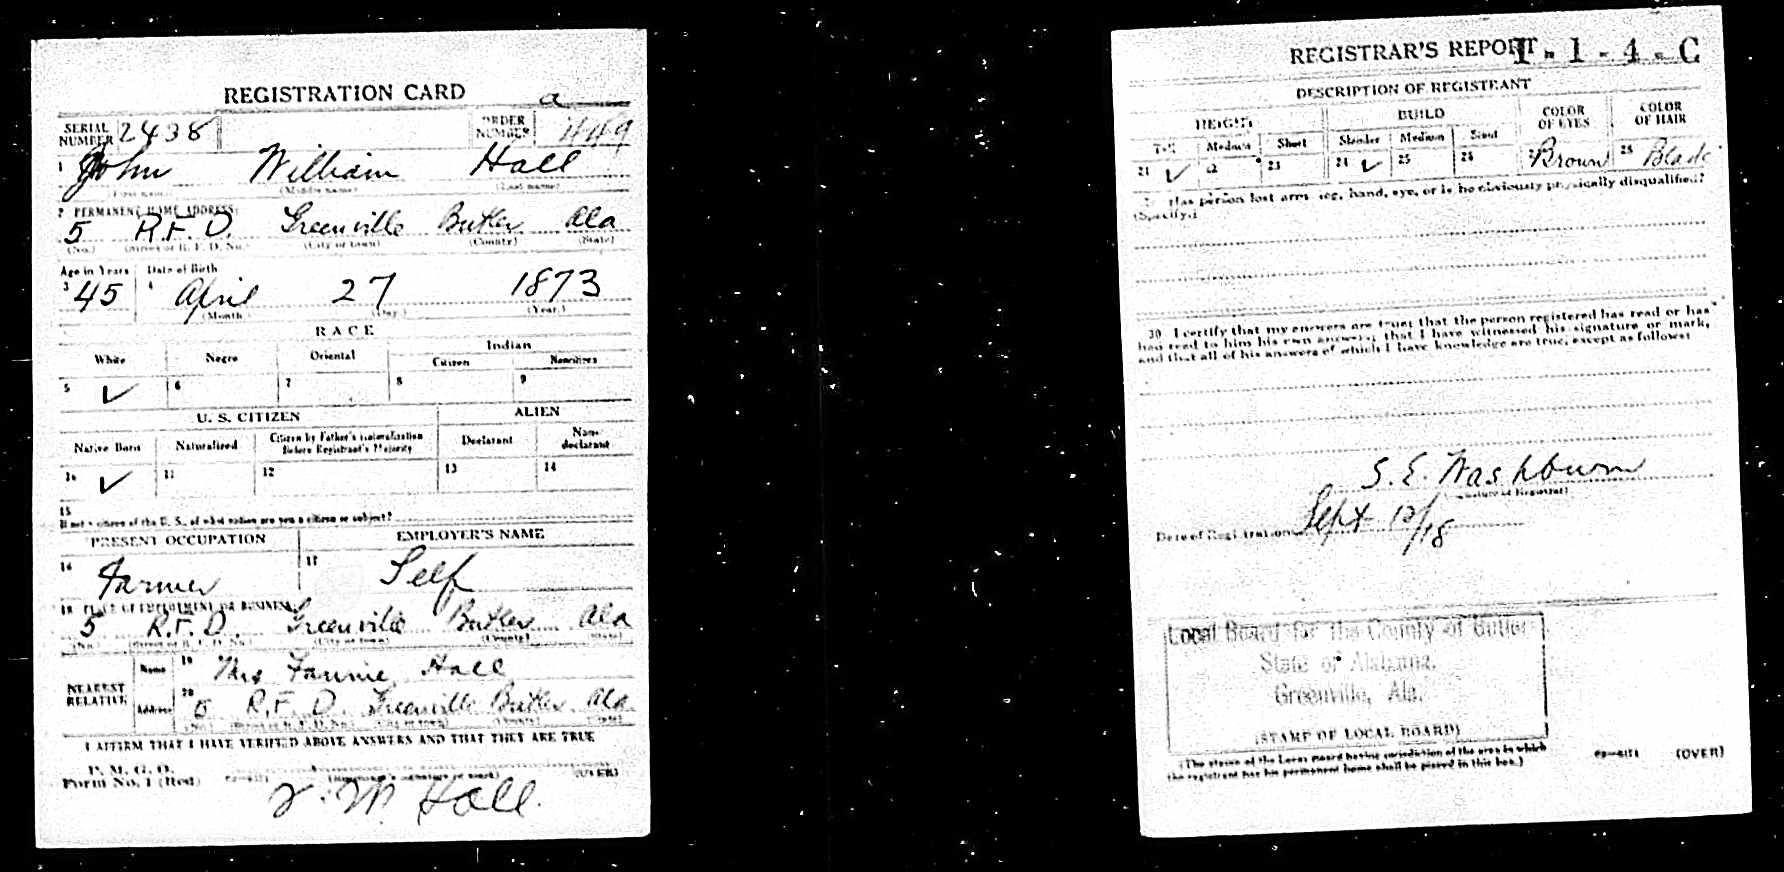 REGISTRATION CARD a
SERIAL NUMBER 2438 ORDER NUMBER 449
1 John William Hall
(First name) (Middle name) (Last name)
2 PERMANENT HOME ADDRESS:
5 R.F.D. Greenville Butler Ala
(No.) (Street or R. F. D. No.) (City or town) (County) (State)
Age in Years Date of Birth
3 45 4 April 27 1873
(Month) (Day.) (Year.)
RACE
White Negro Oriental Indian
Citizen Noncitizen
5 ✓ 6 7 8 9
U. S. CITIZEN ALIEN
Native Born Naturalized Citizen by Father's Naturalization Before Registrant's Majority Declarant Non-declarant
10 ✓ 11 12 13 14
15
If not a citizen of the U. S., of what nation are you a citizen or subject?
PRESENT OCCUPATION EMPLOYER'S NAME
16 Farmer 17 Self
18 PLACE OF EMPLOYMENT OR BUSINESS:
5 R.F.D. Greenville Butler Ala
(No.) (Street or R. F. D. No.) (City or town) (County) (State)
NEAREST RELATIVE Name 19 Mrs Fannie Hall
Address 20 5 R.F.D. Greenville Butler Ala
(No.) (Street or R. F. D. No.) (City or town) (County) (State)
I AFFIRM THAT I HAVE VERIFIED ABOVE ANSWERS AND THAT THEY ARE TRUE
P. M. G. O.
Form No. 1 (Red) (Registrant's signature or mark) (OVER)
J. W. Hall.
REGISTRAR'S REPORT 1-1-4-C
DESCRIPTION OF REGISTRANT
HEIGHT BUILD COLOR OF EYES COLOR OF HAIR
Tall Medium Short Slender Medium Stout
21 ✓ 22 23 24 ✓ 25 26 27 Brown 28 Black
29 Has person lost arm, leg, hand, eye, or is he obviously physically disqualified?
(Specify.)
30 I certify that my answers are true; that the person registered has read or has
had read to him his own answers; that I have witnessed his signature or mark,
and that all of his answers of which I have knowledge are true, except as follows:
S. E. Washburn
(Signature of Registrar)
Date of Registration Sept 12/18
Local Board for the County of Butler
State of Alabama.
Greenville, Ala.
(STAMP OF LOCAL BOARD)
(The stamp of the Local Board having jurisdiction of the area in which
the registrant has his permanent home shall be placed in this box.)
(OVER)